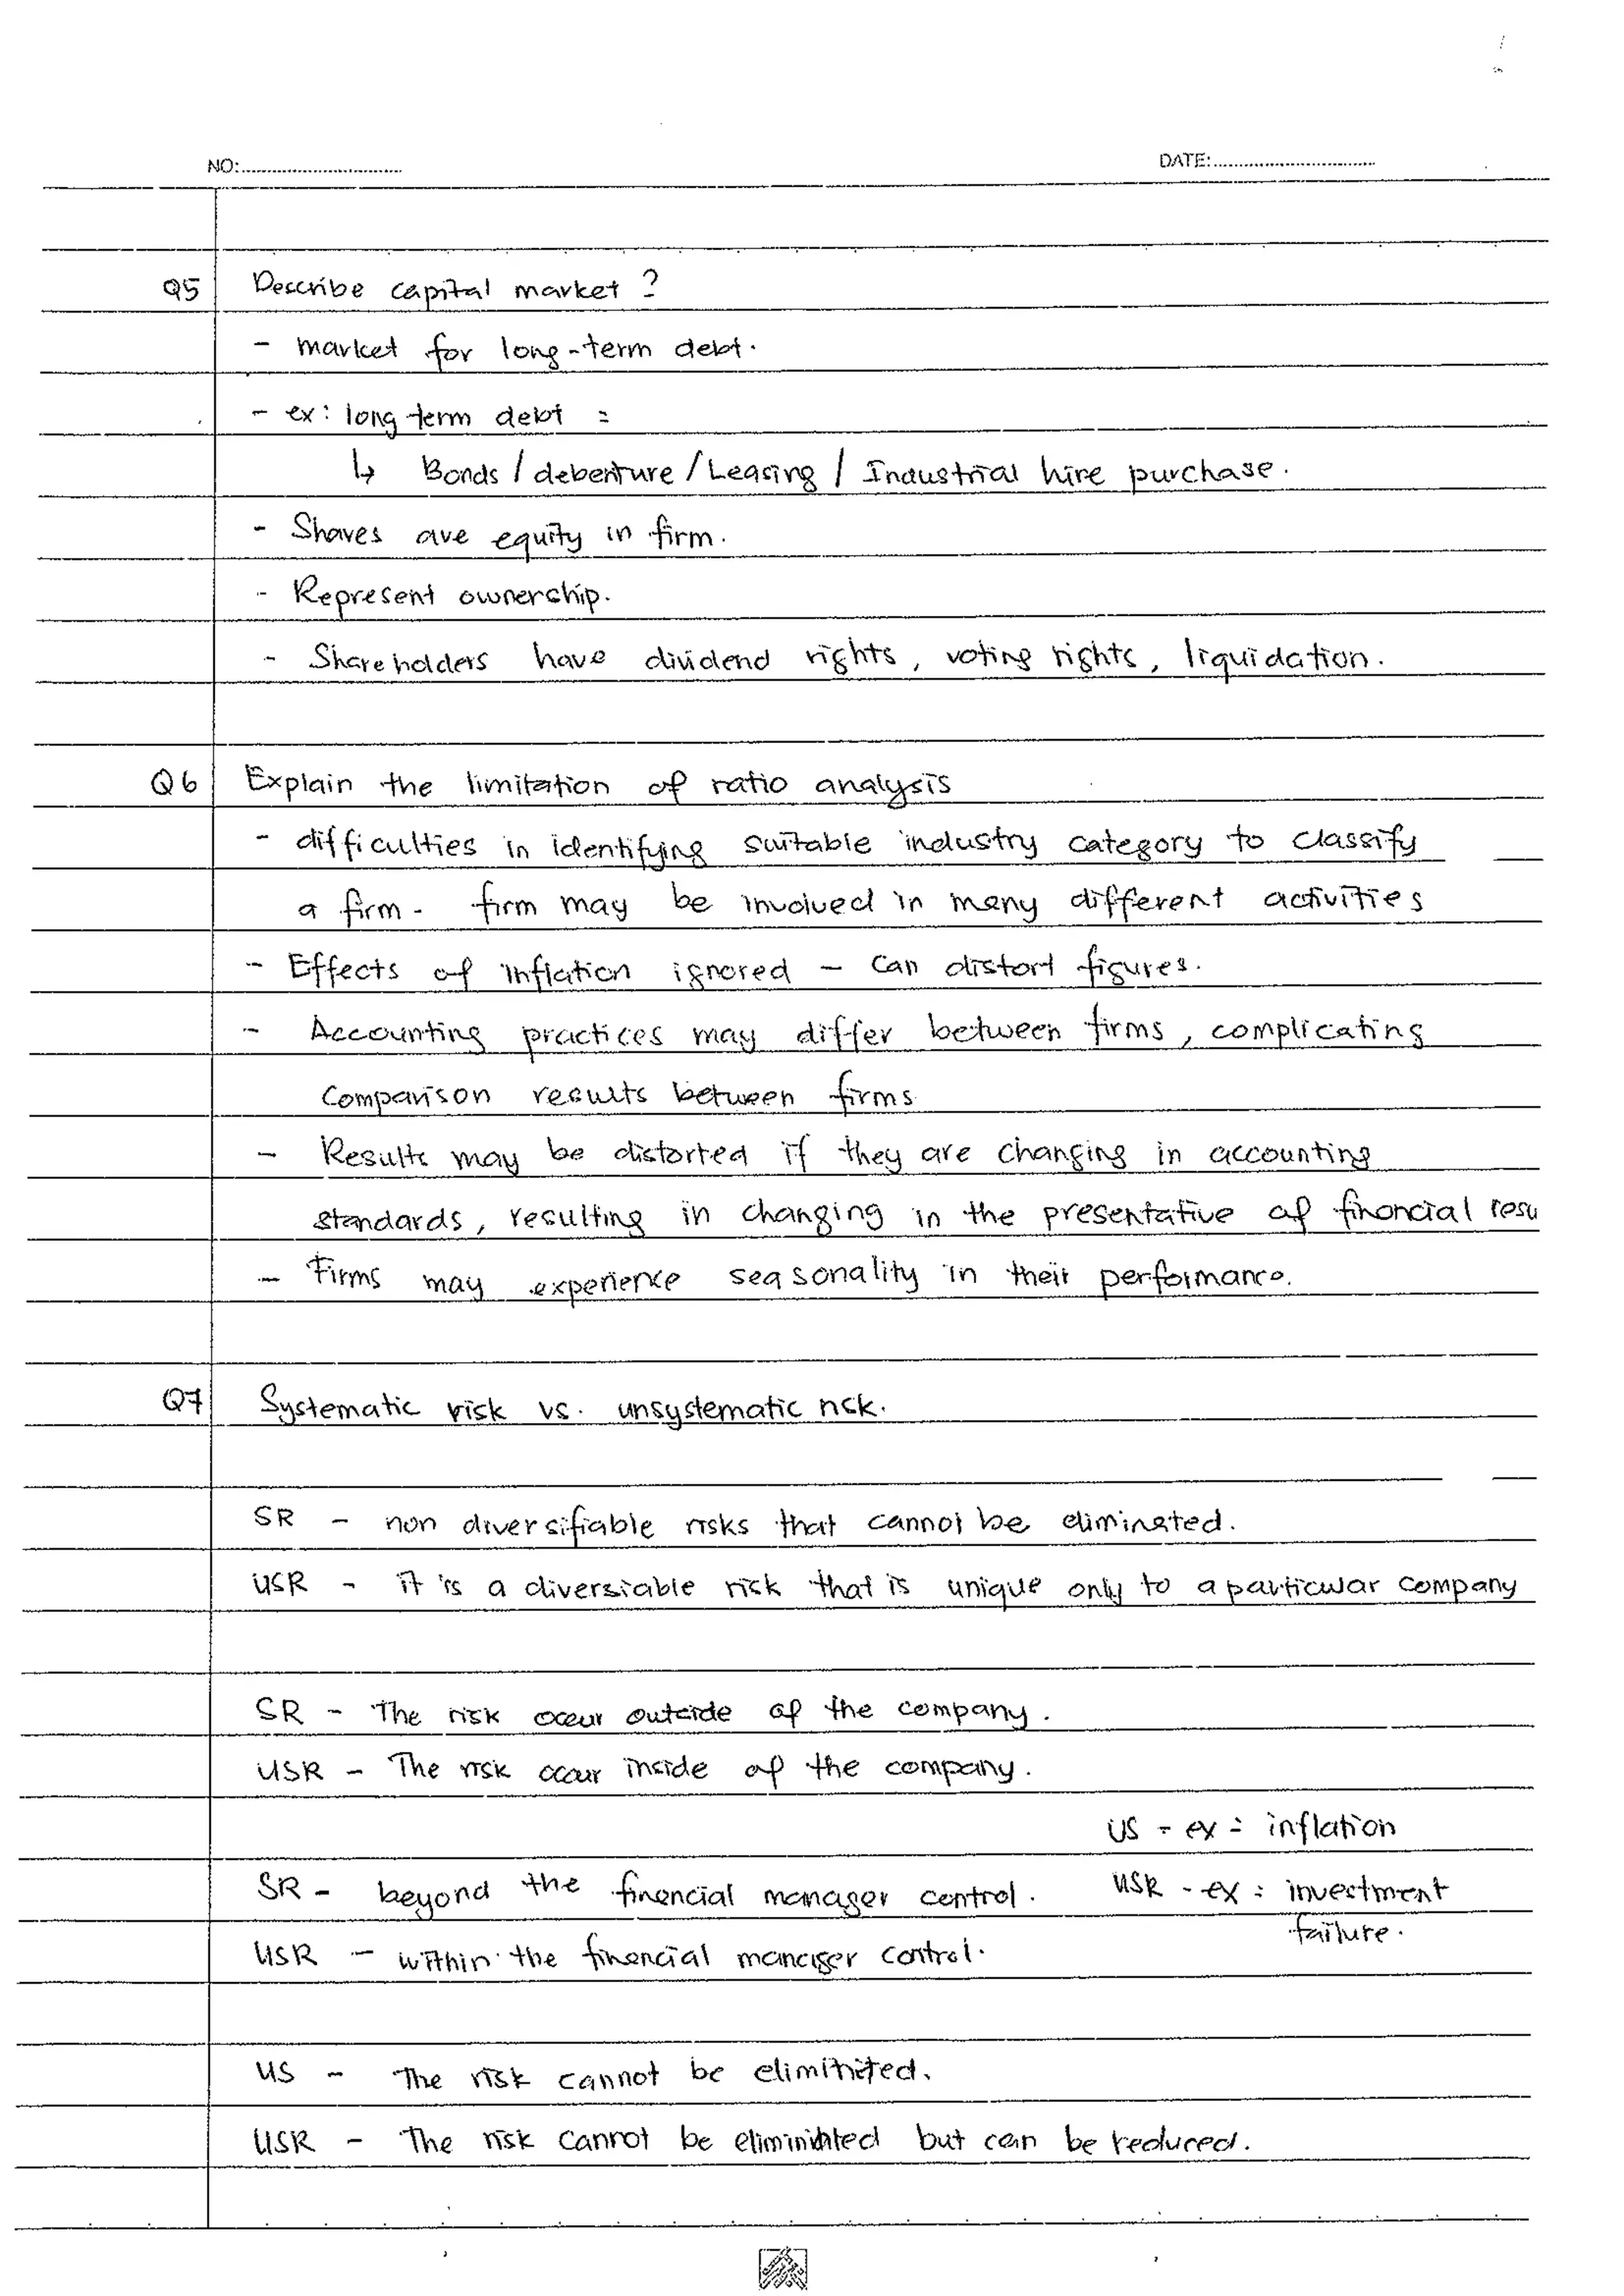 NO:
DATE:
Q5 Describe capital market ?
- market for long-term debt.
- ex: long term debt =
↳ Bonds / debenture / Leasing / Industrial hire purchase.
- Shares are equity in firm.
- Represent ownership.
- Shareholders have dividend rights, voting rights, liquidation.
Q6 Explain the limitation of ratio analysis
- difficulties in identifying suitable industry category to classify
a firm - firm may be involved in many different activities
- Effects of inflation ignored - can distort figures.
- Accounting practices may differ between firms, complicating
comparison results between firms
- Results may be distorted if they are changing in accounting
standards, resulting in changing in the presentative of financial resu
- Firms may experience seasonality in their performance.
Q7 Systematic risk vs. unsystematic risk.
SR - non diversifiable risks that cannot be eliminated.
USR - it is a diversiable risk that is unique only to a particular company
SR - The risk occur outside of the company.
USR - The risk occur inside of the company.
US - ex = inflation
SR - beyond the financial manager control. USR - ex : investment
failure.
USR - within the financial manager control.
US - The risk cannot be eliminited.
USR - The risk cannot be eliminated but can be reduced.